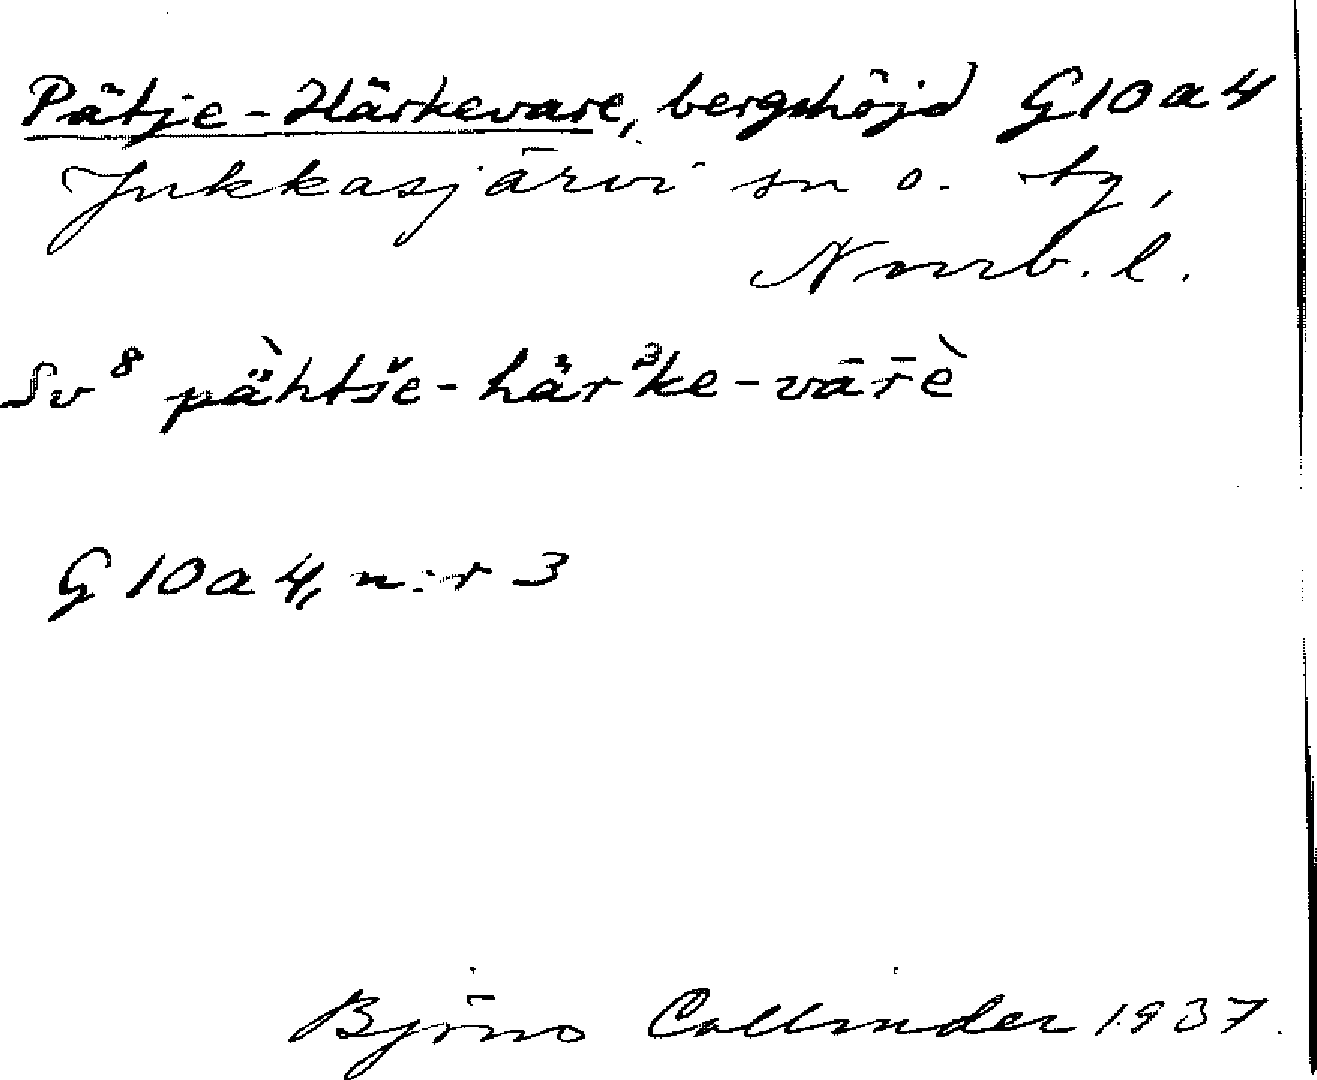 Pätje-Härkevare, bergshöjd G10a4
Jukkasjärvi sn o. tg,
Norrb. l.
Sv 8 pæ̀htše-hår³ke-vārḕ
G10a4, n:r 3
Björn Collinder 1937.